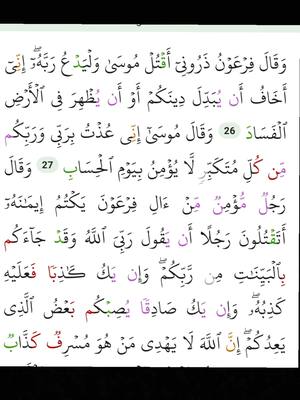 وَقَالَ فِرْعَوْنُ ذَرُونِىٓ أَقْتُلْ مُوسَىٰ وَلْيَدْعُ رَبَّهُۥٓ ۖ إِنِّىٓ
أَخَافُ أَن يُبَدِّلَ دِينَكُمْ أَوْ أَن يُظْهِرَ فِى ٱلْأَرْضِ
ٱلْفَسَادَ 26 وَقَالَ مُوسَىٰٓ إِنِّى عُذْتُ بِرَبِّى وَرَبِّكُم
مِّن كُلِّ مُتَكَبِّرٍ لَّا يُؤْمِنُ بِيَوْمِ ٱلْحِسَابِ 27 وَقَالَ
رَجُلٌ مُّؤْمِنٌ مِّنْ ءَالِ فِرْعَوْنَ يَكْتُمُ إِيمَـٰنَهُۥٓ
أَتَقْتُلُونَ رَجُلًا أَن يَقُولَ رَبِّىَ ٱللَّهُ وَقَدْ جَآءَكُم
بِٱلْبَيِّنَـٰتِ مِن رَّبِّكُمْ ۖ وَإِن يَكُ كَـٰذِبًا فَعَلَيْهِ
كَذِبُهُۥ ۖ وَإِن يَكُ صَادِقًا يُصِبْكُم بَعْضُ ٱلَّذِى
يَعِدُكُمْ ۖ إِنَّ ٱللَّهَ لَا يَهْدِى مَنْ هُوَ مُسْرِفٌ كَذَّابٌ